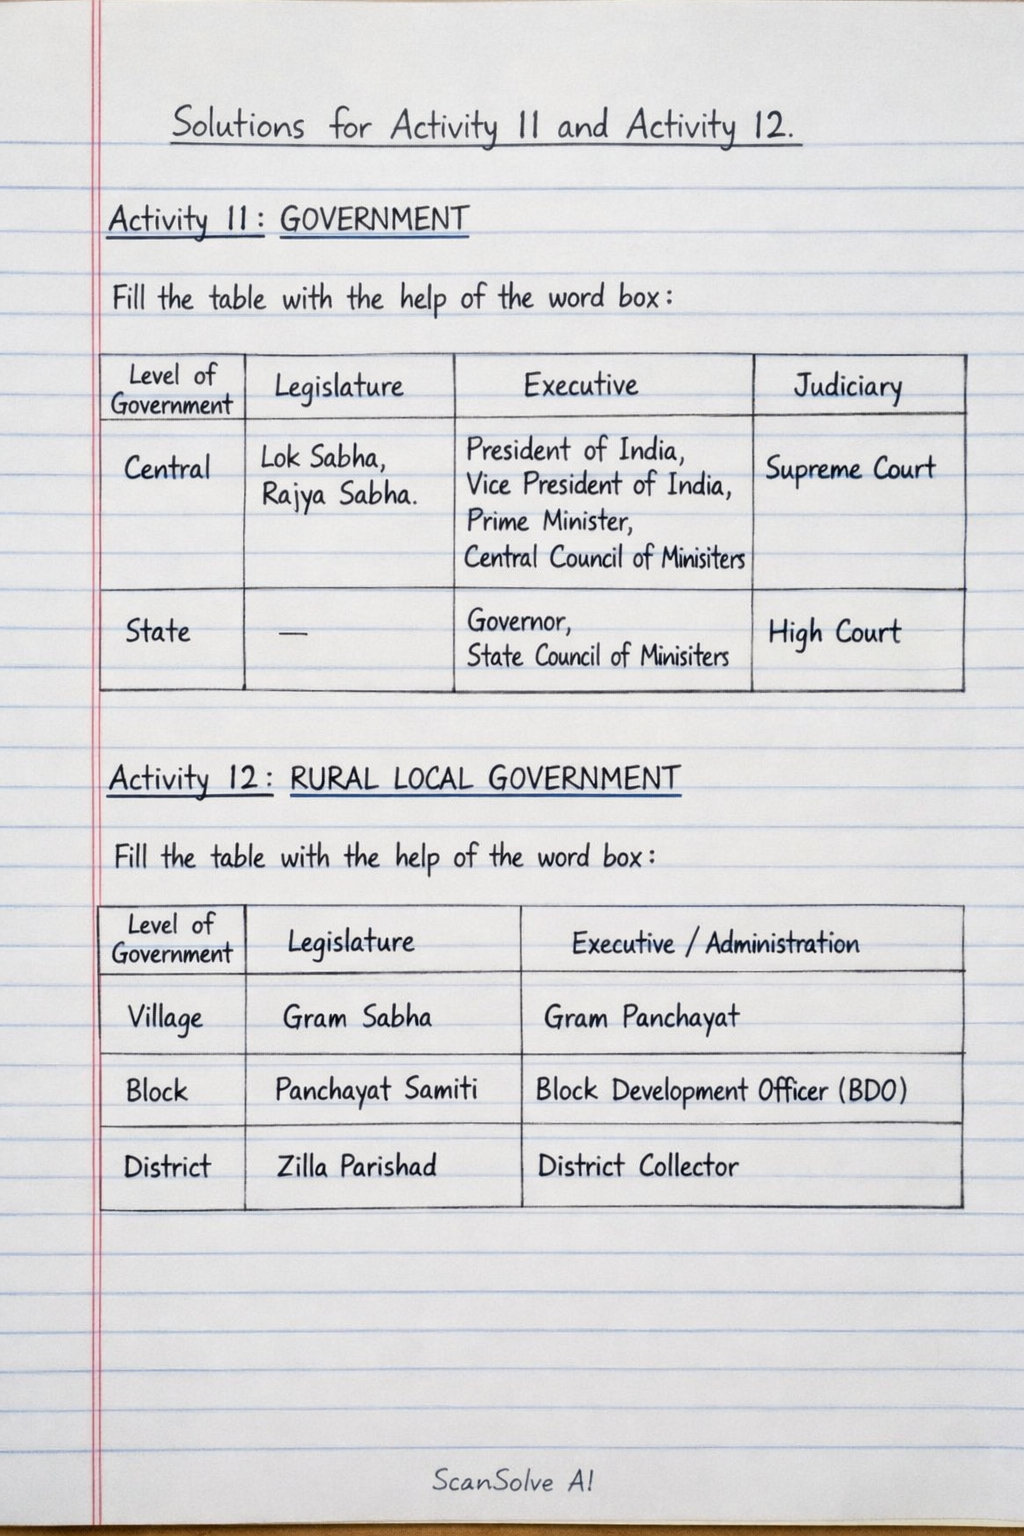 Solutions for Activity 11 and Activity 12.
Activity 11: GOVERNMENT
Fill the table with the help of the word box:
Level of
Government
Legislature
Executive
Judiciary
Central
Lok Sabha,
Rajya Sabha.
President of India,
Vice President of India,
Prime Minister,
Central Council of Minisiters
Supreme Court
State
—
Governor,
State Council of Minisiters
High Court
Activity 12: RURAL LOCAL GOVERNMENT
Fill the table with the help of the word box:
Level of
Government
Legislature
Executive / Administration
Village
Gram Sabha
Gram Panchayat
Block
Panchayat Samiti
Block Development Officer (BDO)
District
Zilla Parishad
District Collector
ScanSolve AI